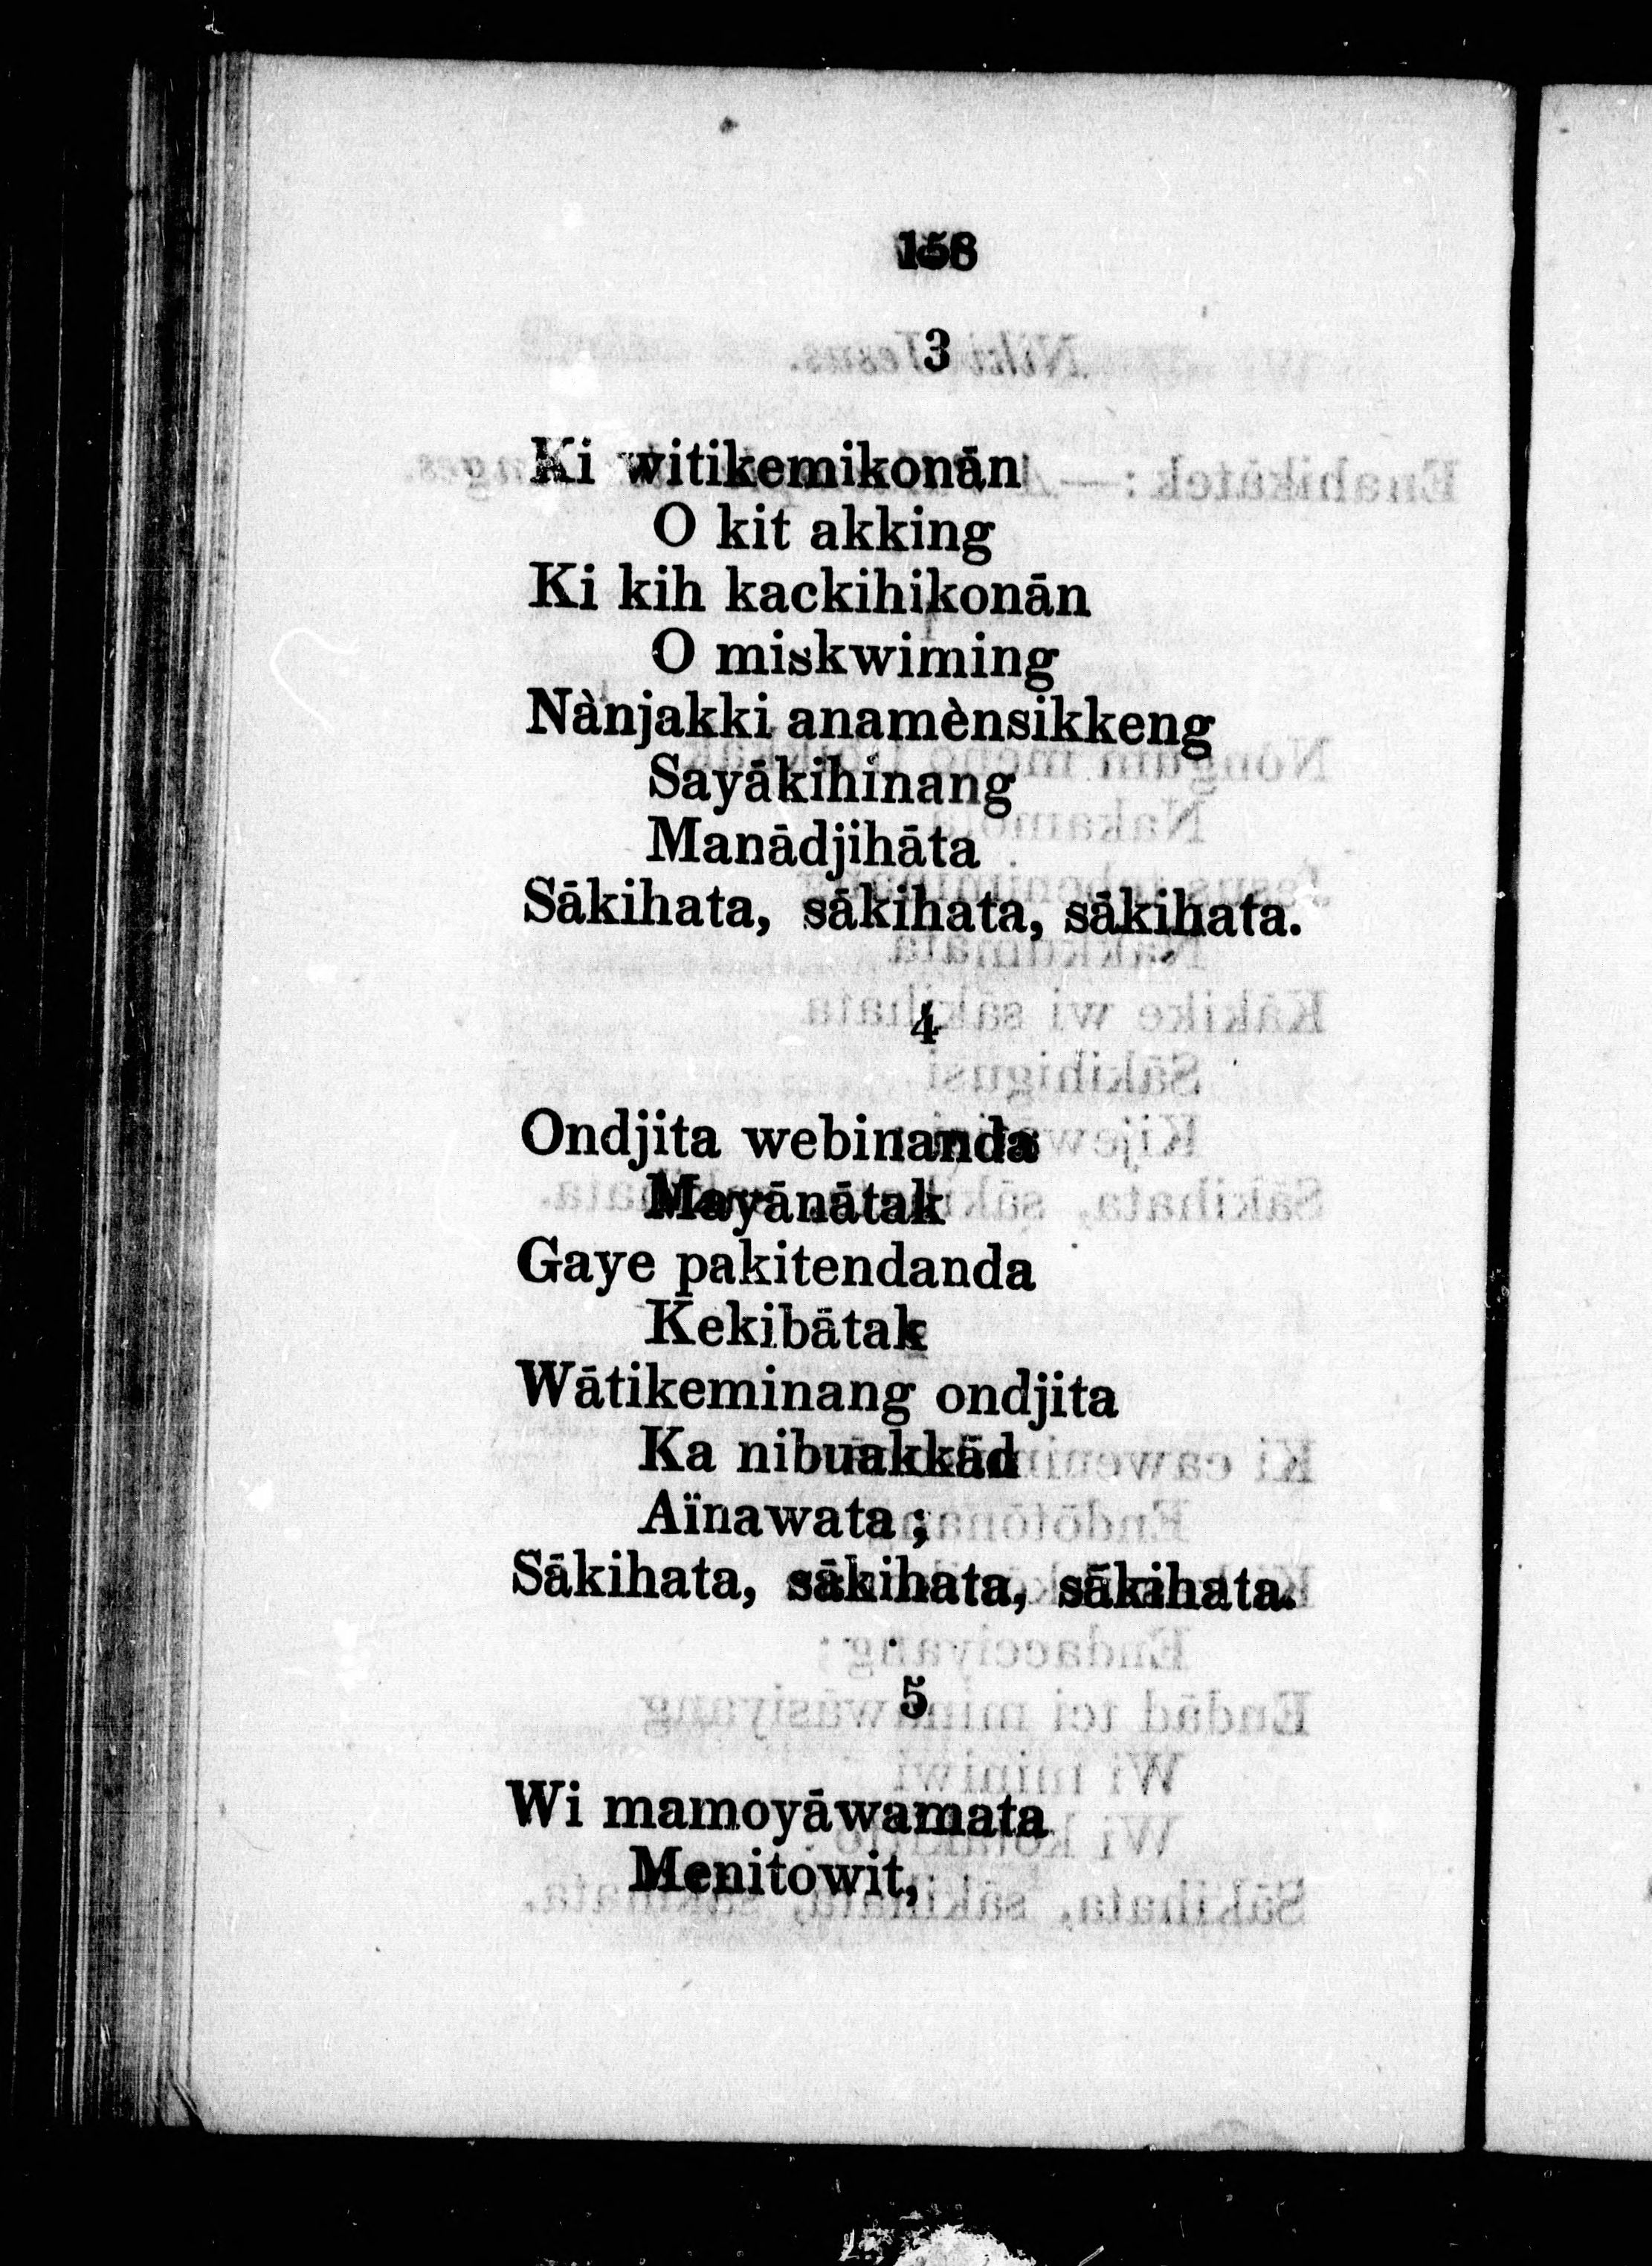 158
3
Ki witikemikonān
O kit akking
Ki kih kackihikonān
O miskwiming
Nànjakki anamènsikkeng
Sayākihinang
Manādjihāta
Sākihata, sākihata, sākihata.
4
Ondjita webinanda
Mayānātak
Gaye pakitendanda
Kekibātak
Wātikeminang ondjita
Ka nibuakkād
Aïnawata ;
Sākihata, sākihata, sākihata.
5
Wi mamoyāwamata
Menitowit,